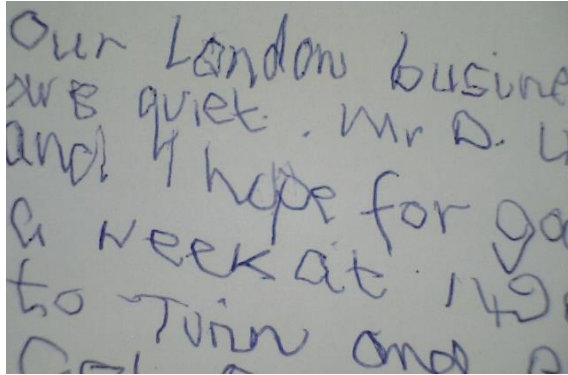 Our London busine
are quiet. Mr D. U
and I hope for go
a week at 149
to Turin and